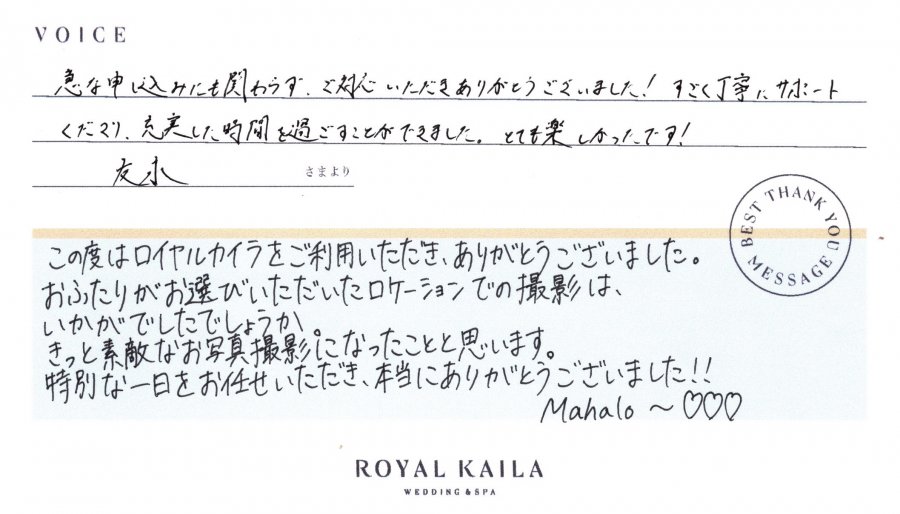 VOICE
急な申し込みにも関わらず、ご対応いただきありがとうございました！ すごく丁寧にサポート
くださり、充実した時間を過ごすことができました。とても楽しかったです！
友永 さまより
BEST THANK YOU MESSAGE
この度はロイヤルカイラをご利用いただき、ありがとうございました。
おふたりがお選びいただいたロケーションでの撮影は、
いかがでしたでしょうか。
きっと素敵なお写真撮影になったことと思います。
特別な一日をお任せいただき、本当にありがとうございました!!
Mahalo ~ ♡♡♡
ROYAL KAILA
WEDDING & SPA